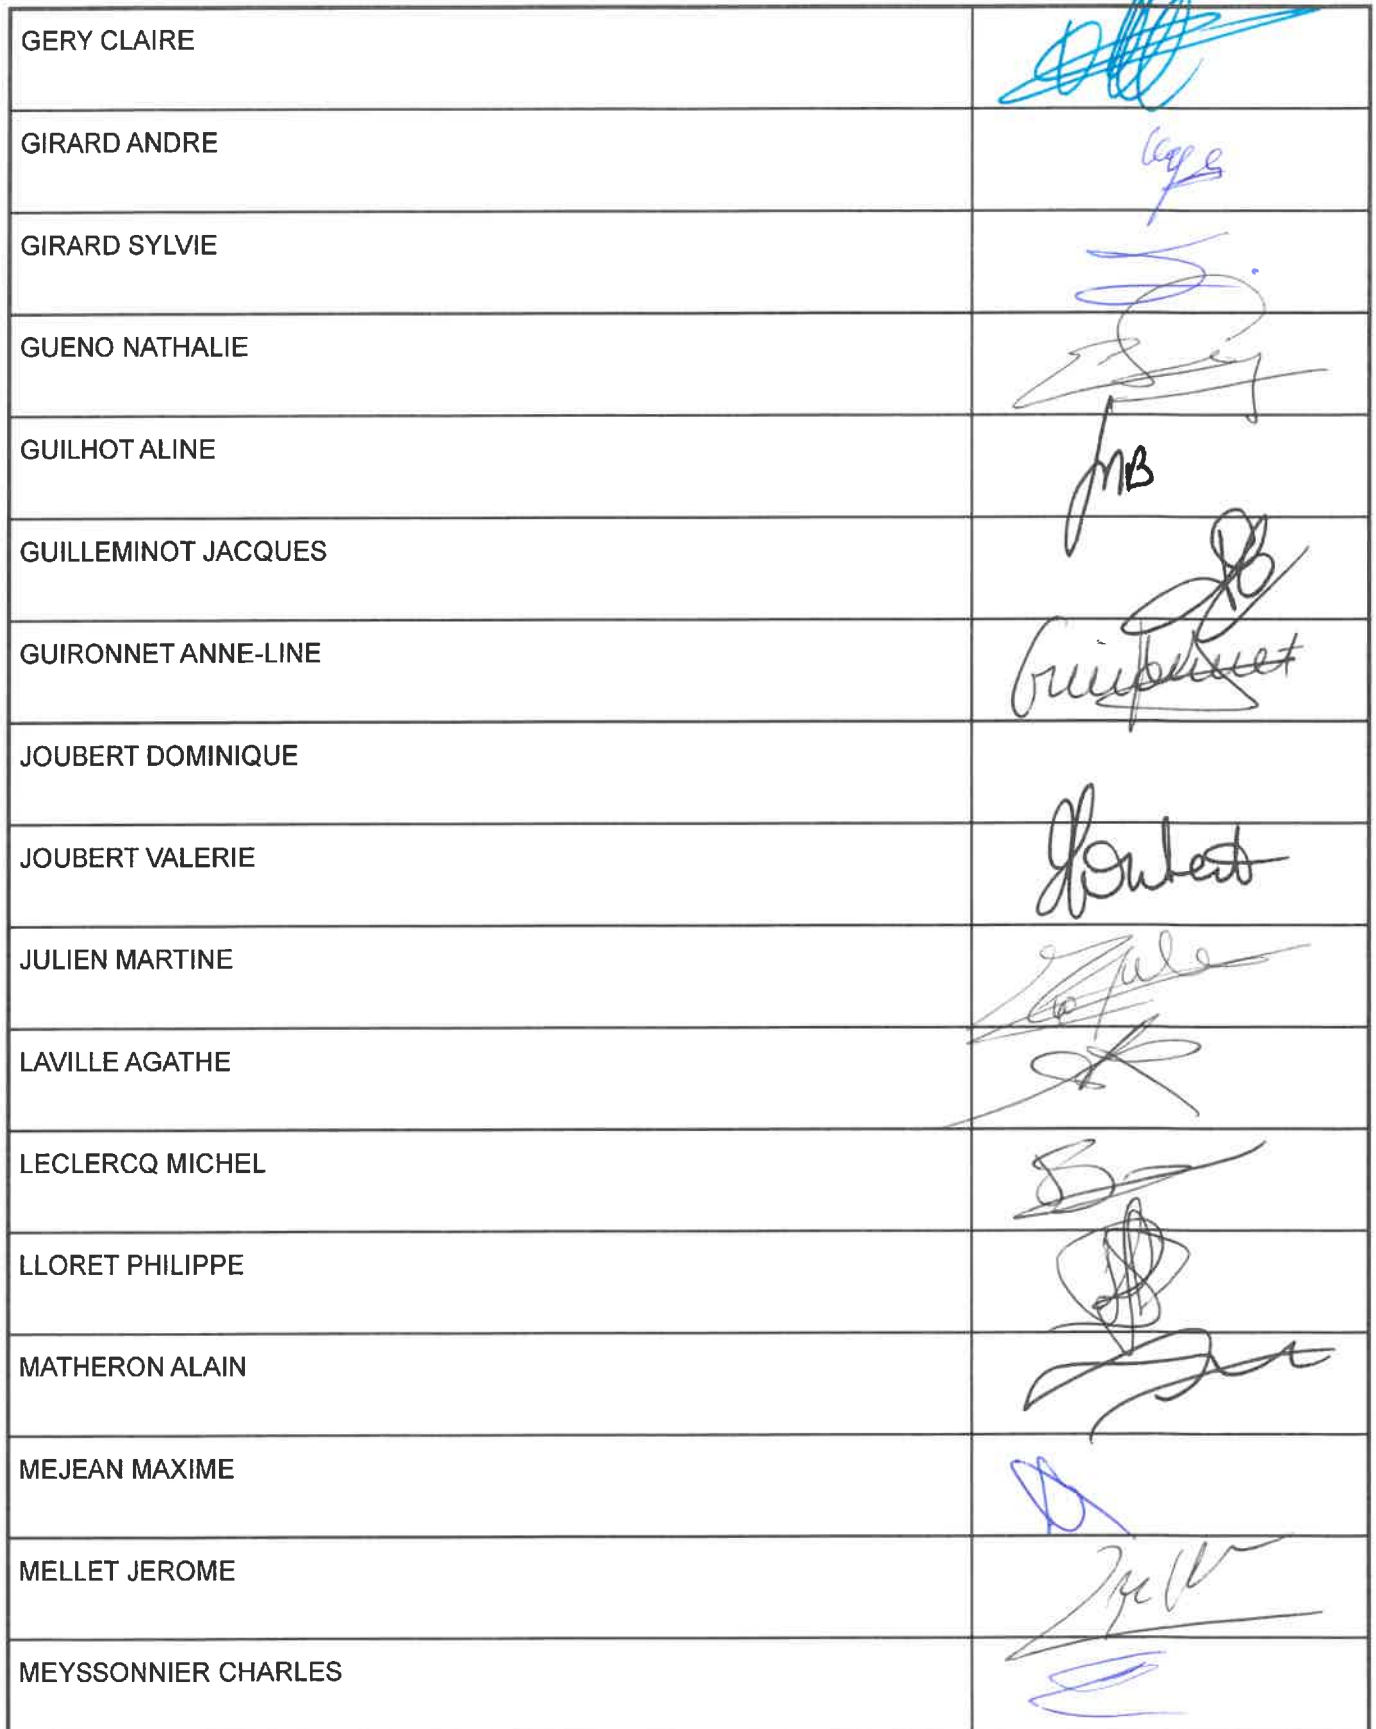 GERY CLAIRE
GIRARD ANDRE
GIRARD SYLVIE
GUENO NATHALIE
GUILHOT ALINE
GUILLEMINOT JACQUES
GUIRONNET ANNE-LINE
Guironnet
JOUBERT DOMINIQUE
JOUBERT VALERIE
Joubert
JULIEN MARTINE
LAVILLE AGATHE
LECLERCQ MICHEL
LLORET PHILIPPE
MATHERON ALAIN
MEJEAN MAXIME
MELLET JEROME
MEYSSONNIER CHARLES